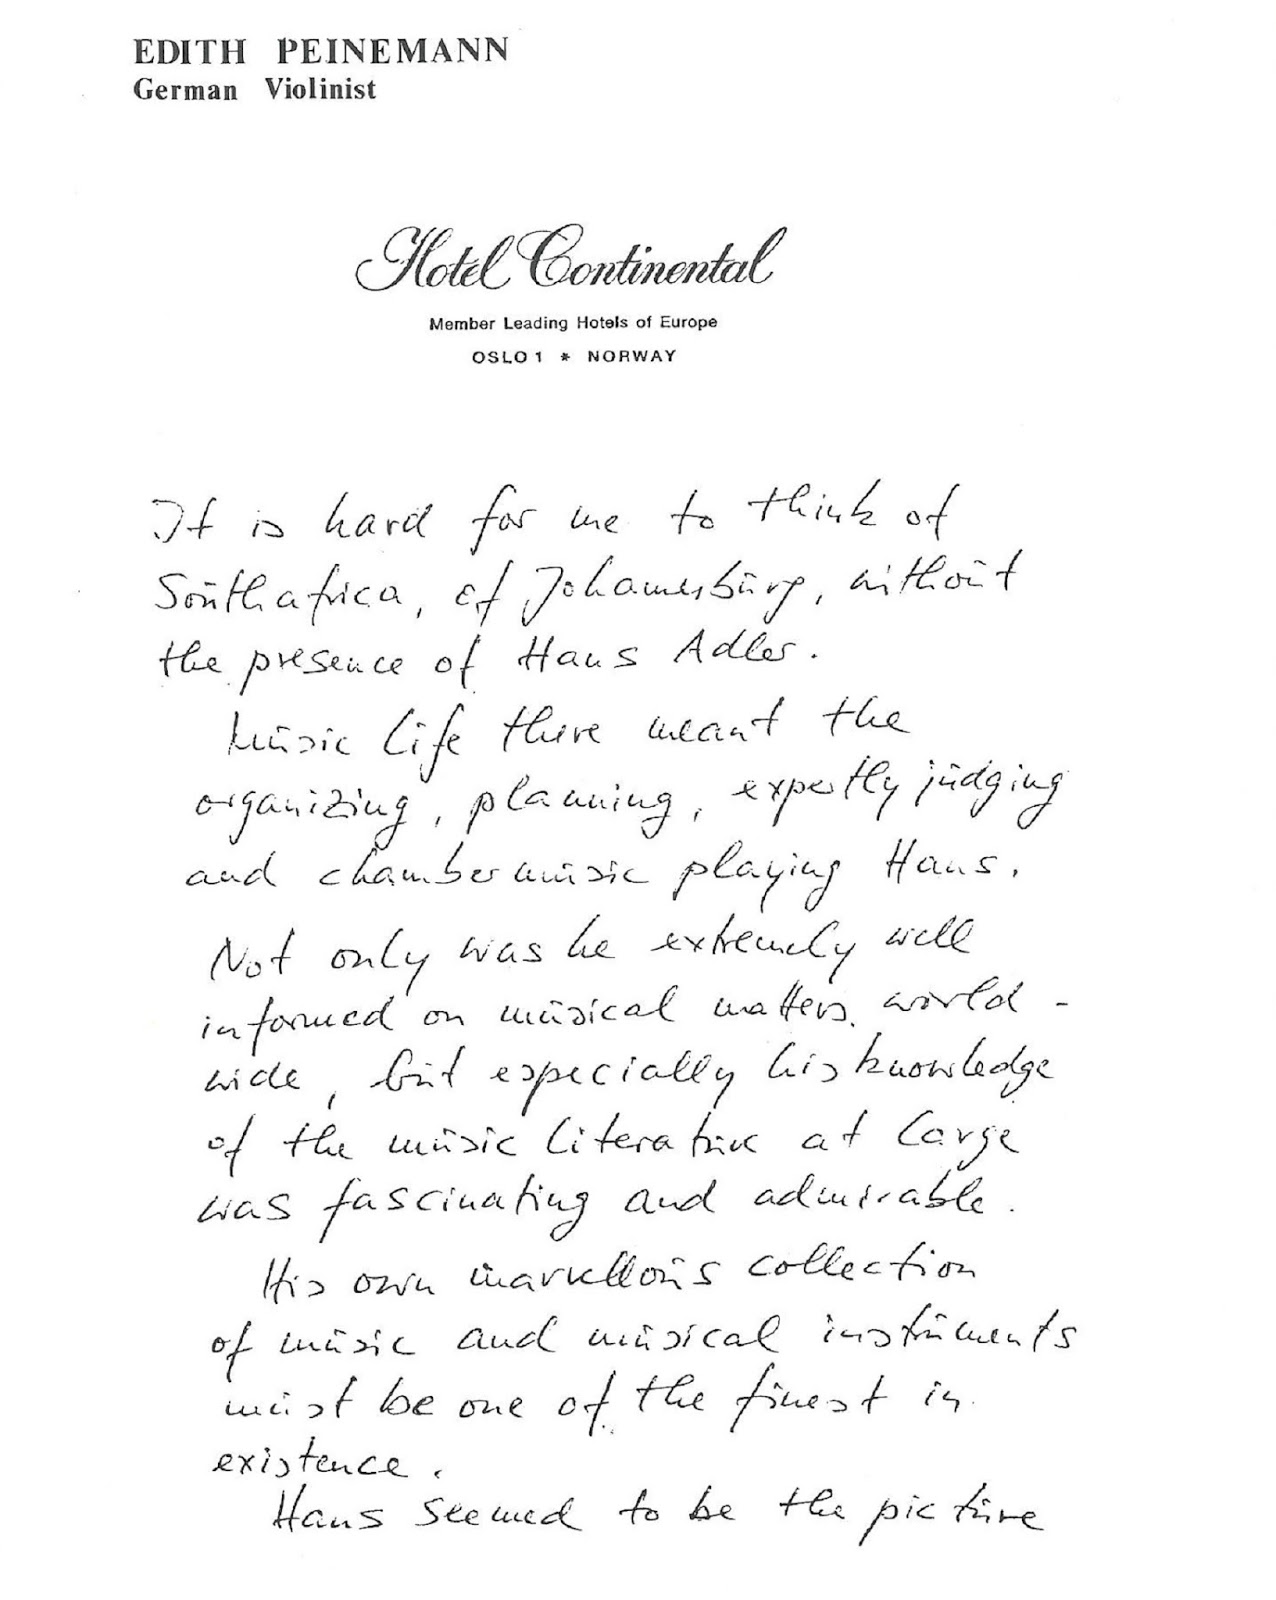 EDITH PEINEMANN
German Violinist
Hotel Continental
Member Leading Hotels of Europe
OSLO 1 * NORWAY
It is hard for me to think of
Southafrica, of Johannesburg, without
the presence of Hans Adler.
Music life there meant the
organizing, planning, expertly judging
and chambermusic playing Hans.
Not only was he extremely well
informed on musical matters world-
wide, but especially his knowledge
of the music literature at large
was fascinating and admirable.
His own marvellous collection
of music and musical instruments
must be one of the finest in
existence.
Hans seemed to be the picture